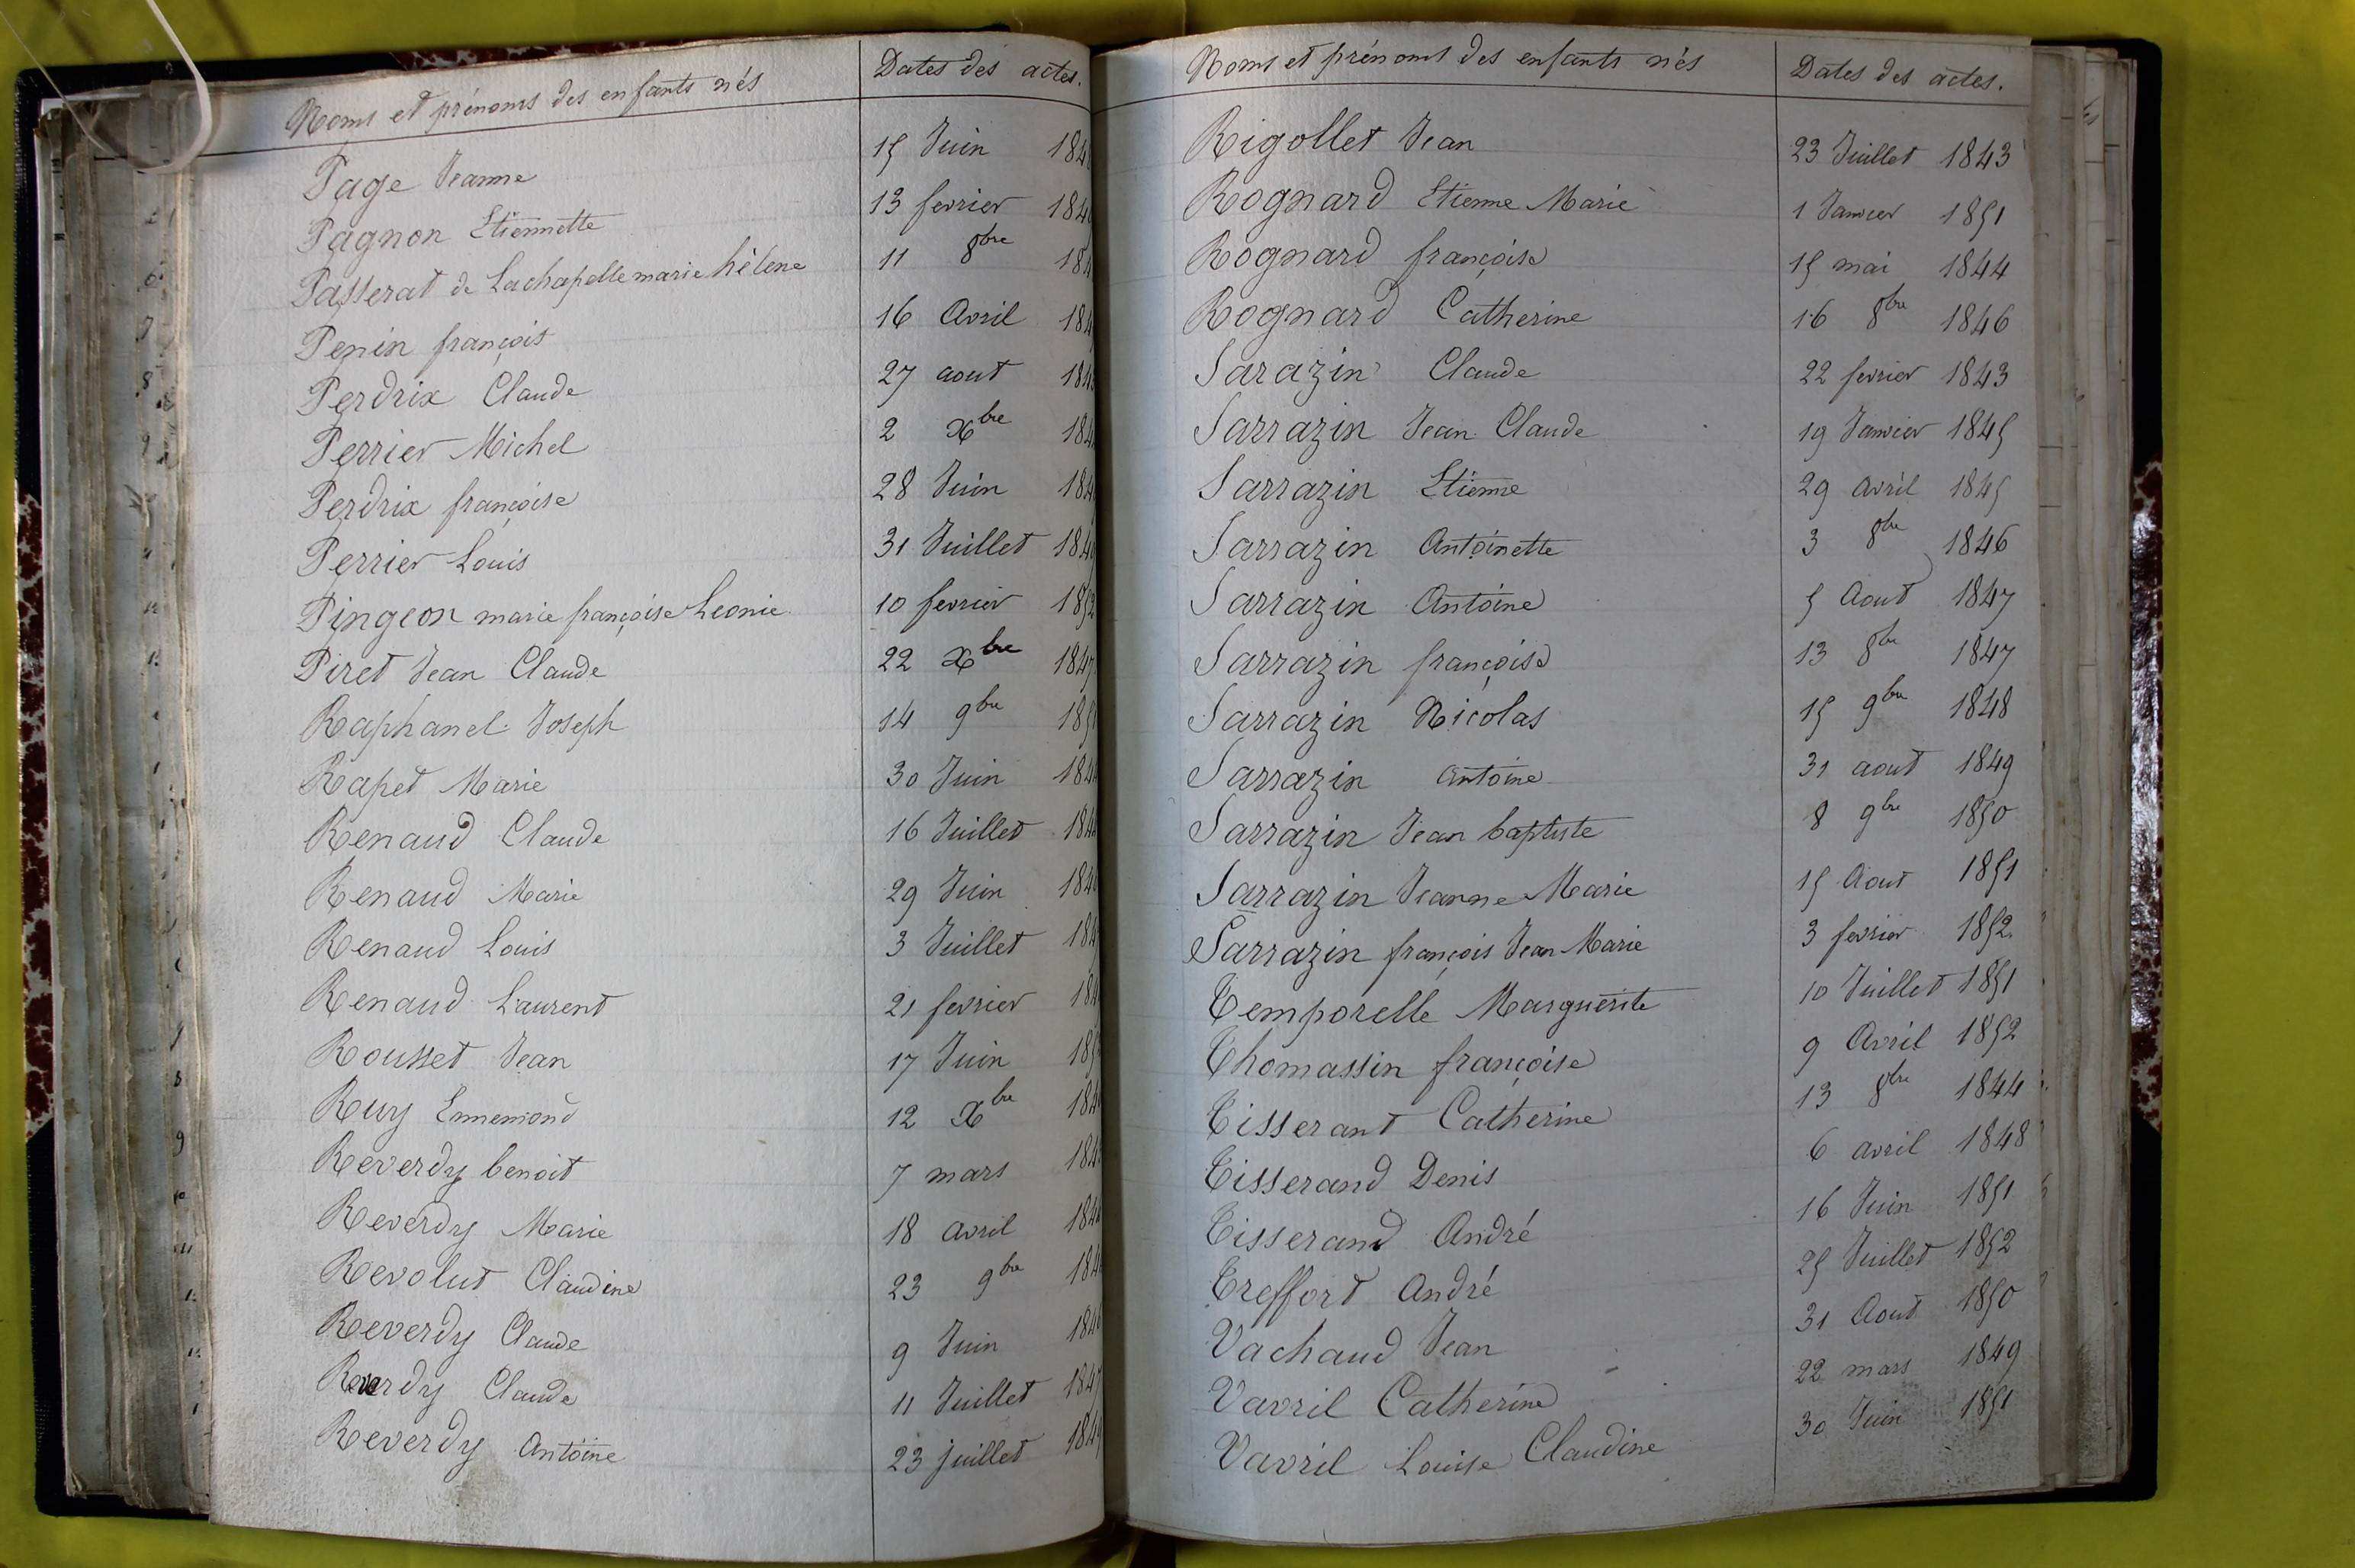 Noms et prénoms des enfants nés Dates des actes.
Page Jeanne 15 Juin
Pagnon Etiennette 13 fevrier
Passerat de Lachapelle marie hélène 11 8bre
Penin françois 16 Avril
Perdrix Claude 27 aout
Perrier Michel 2 Xbre
Perdrix françoise 28 Juin
Perrier Louis 31 Juillet
Pingeon marie françoise Leonie 10 fevrier 1852
Piret Jean Claude 22 Xbre 1847
Raphanel Joseph 14 9bre
Rapet Marie 30 Juin
Renaud Claude 16 Juillet
Renaud Marie 29 Juin
Renaud Louis 3 Juillet
Renaud Laurent 21 fevrier
Rousset Jean 17 Juin
Ruy Ennemond 12 Xbre
Reverdy benoit 7 mars
Reverdy Marie 18 avril
Revolut Claudine 23 9bre
Reverdy Claude 9 Juin 1846
Reverdy Claude 11 Juillet 1847
Reverdy Antoine 23 juillet 1849
Noms et prénoms des enfants nés Dates des actes.
Rigollet Jean 23 Juillet 1843
Rognard Etienne Marie 1 Janvier 1851
Rognard françoise 15 mai 1844
Rognard Catherine 16 8bre 1846
Sarazin Claude 22 fevrier 1843
Sarrazin Jean Claude 19 Janvier 1845
Sarrazin Etienne 29 avril 1845
Sarrazin Antoinette 3 8bre 1846
Sarrazin Antoine 5 Aout 1847
Sarrazin françoise 13 8bre 1847
Sarrazin Nicolas 15 9bre 1848
Sarrazin Antoine 31 aout 1849
Sarrazin Jean baptiste 8 9bre 1850
Sarrazin Jeanne Marie 15 Aout 1851
Sarrazin françois Jean Marie 3 fevrier 1852
Temporelle Marguerite 10 Juillet 1851
Thomassin françoise 9 Avril 1852
Tisserant Catherine 13 8bre 1844
Tisserand Denis 6 avril 1848
Tisserand André 16 Juin 1851
Treffort André 25 Juillet 1852
Vachaud Jean 31 Aout 1850
Vavril Catherine 22 mars 1849
Vavril Louise Claudine 30 Juin 1851